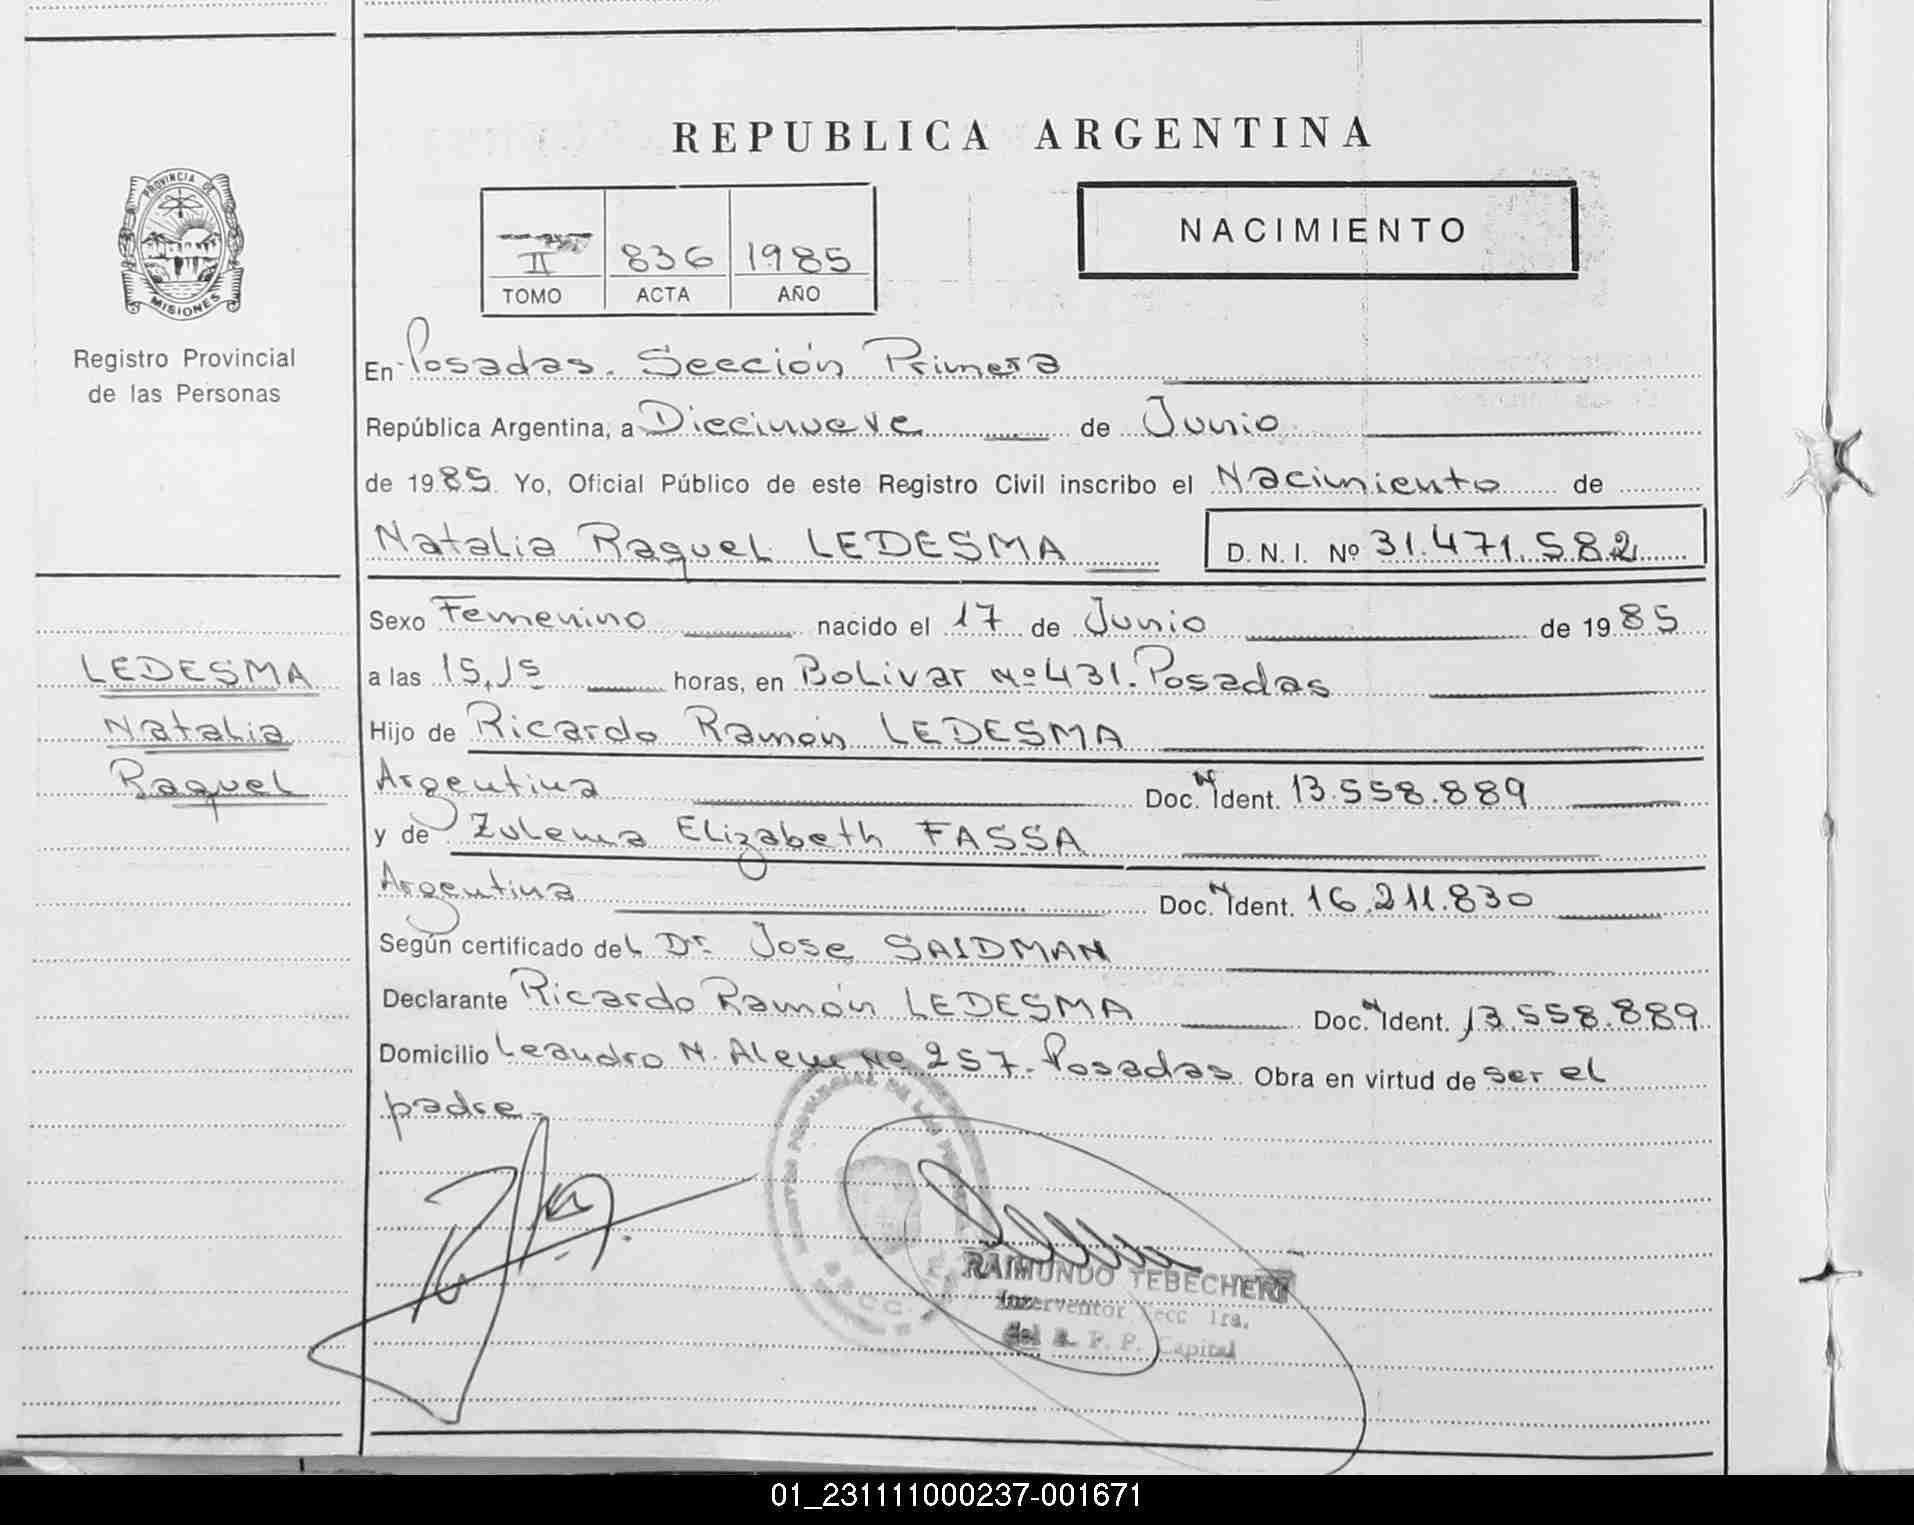 REPUBLICA ARGENTINA
PROVINCIA DE
MISIONES
Registro Provincial
de las Personas
II 836 1985
TOMO ACTA AÑO
NACIMIENTO
En Posadas. Sección Primera
República Argentina, a Diecinueve de Junio
de 1985 Yo, Oficial Público de este Registro Civil inscribo el Nacimiento de
Natalia Raquel LEDESMA D. N. I. Nº 31.471.582
Sexo Femenino nacido el 17 de Junio de 1985
LEDESMA
Natalia
Raquel
a las 15,15 horas, en Bolivar Nº 431. Posadas
Hijo de Ricardo Ramón LEDESMA
Argentina Doc. N Ident. 13.558.889
y de Zulema Elizabeth FASSA
Argentina Doc. N Ident. 16.211.830
Según certificado del Dr. Jose SAIDMAN
Declarante Ricardo Ramón LEDESMA Doc. N Ident. 13.558.889
Domicilio Leandro N. Alem Nº 257. Posadas Obra en virtud de ser el
padre.
RAIMUNDO TEBECHERY
Interventor Secc 1ra.
del R. P. P. Capital
01_231111000237-001671